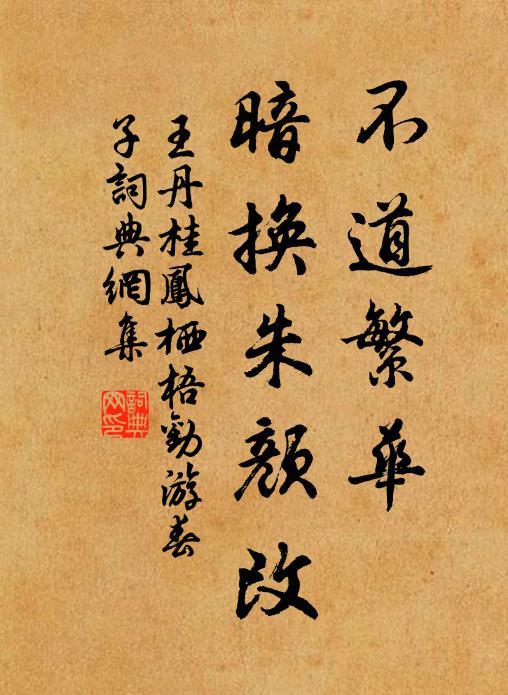 不道繁華
暗換朱顏改
王丹桂鳳栖梧勸游春
子詞典網集
詞典
网印